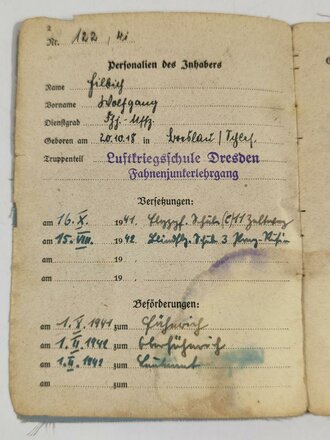 2
Nr. 122, 4i
Personalien des Inhabers
Name Hilbich
Vorname Wolfgang
Dienstgrad Uffz.
Geboren am 20.10.18 in Breslau / Schles.
Truppenteil Luftkriegsschule Dresden
Fahnenjunkerlehrgang
Versetzungen:
am 16. X. 1941. Schule (C) 11 Zeltweg
am 15. VIII. 1942. Blindflg. Schule 3 Prag-Rusin
am 19
am 19
Beförderungen:
am 1. X. 1941 zum Fähnrich
am 1. II. 1942 zum Oberfähnrich
am 1. 1942 zum Leutnant
am zum